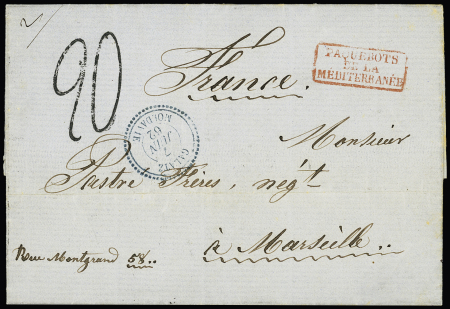 2/
90
France.
PAQUEBOTS
DE LA
MÉDITERRANÉE
GALATZ
JUIN
62
MOLDAVIE
Monsieur
Pastré Frères, négt
à Marseille..
Rue Montgrand 58..